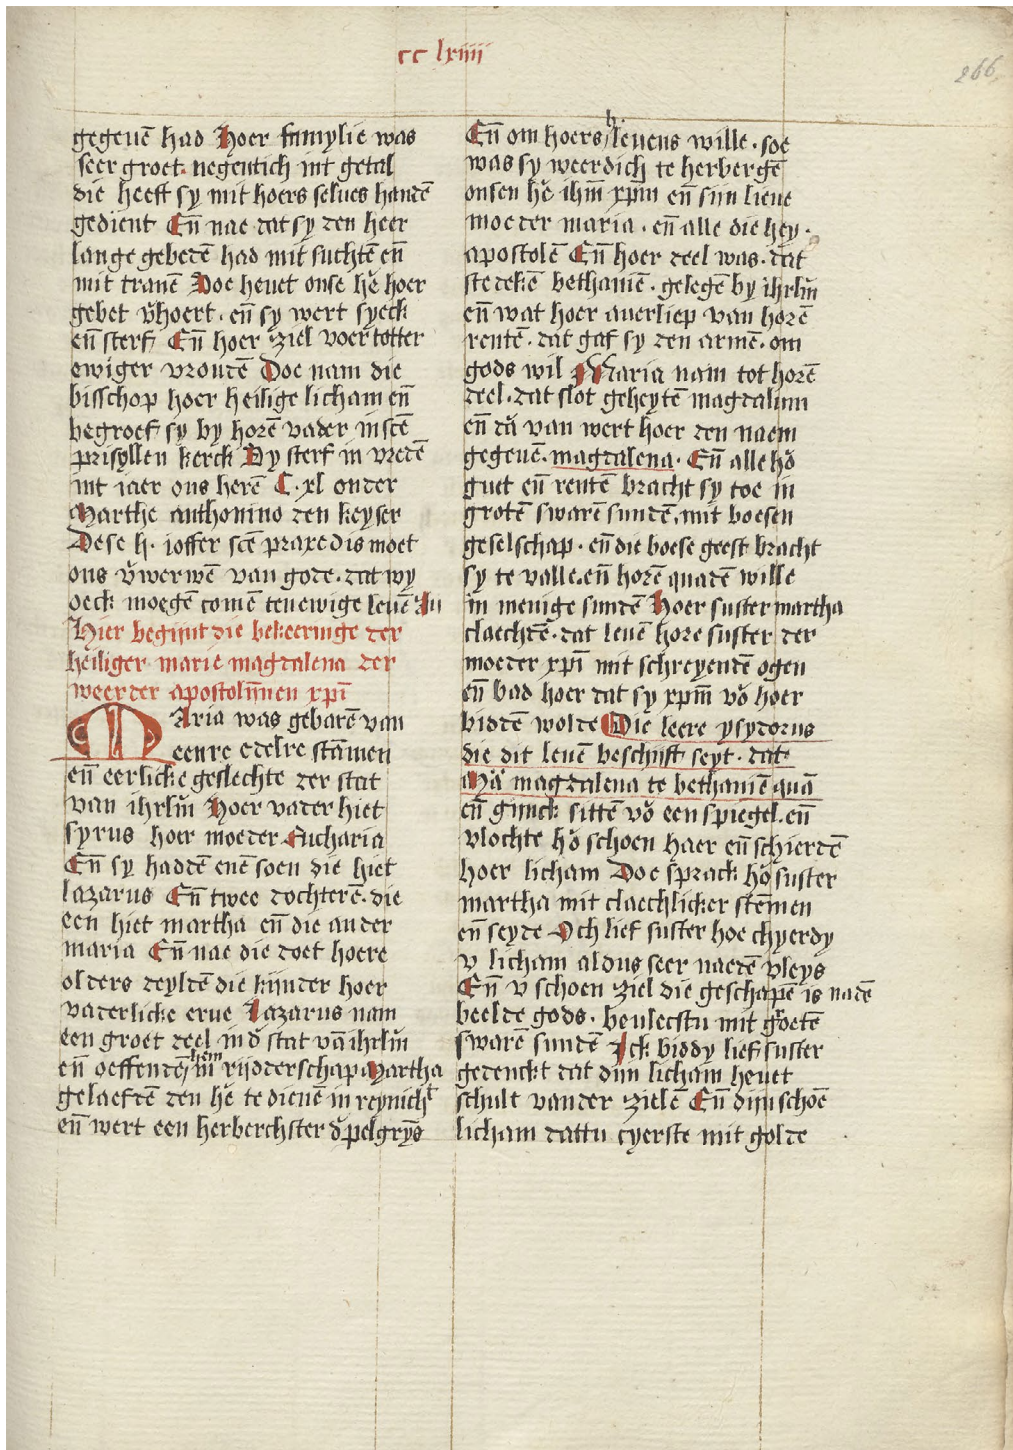 cc lxiiii
266
gegeuē had Hoer famylie was
seer groet. negentich int getal
die heeft sy mit hoers selues handē
gedient Eñ nae dat sy den heer
lange gebedē had mit suchtē eñ
mit tranē Doe heuet onse hē hoer
gebet v̄hoert. eñ sy wert syeck
eñ sterf Eñ hoer ziel voer totter
ewiger vroudē Doe nam die
bisschop hoer heilige licham eñ
begroef sy by horē vader in scē
prisyllen kerck Dy sterf in vredē
int iaer ons herē C. xl onder
Marthe anthonino den keyser
Dese h. ioffer scē praxedis moet
ons v̄werwē van gode. dat wy
oeck moegē comē ten ewige leuē Au
Hier begint die bekeeringe der
heiliger marie magdalena der
weerder apostolīnen xpī
MAria was gebarē van
eenre edelre stāmen
eñ eerlicke geslechte der stat
van ihrlm̄ Hoer vader hiet
syrus hoer moeder Eucharia
Eñ sy haddē enē soen die hiet
lazarus Eñ twee dochterē. die
een hiet martha eñ die ander
maria Eñ nae die doet hoere
olders deyldē die kijnder hoer
vaderlicke erue Lazarus nam
een groet deel in d̄ stat vā ihrlm̄
eñ oeffendē hem in rijdderschap Martha
gelaefdē den hē te dienē in reynicht
eñ wert een herberchster d̄ pelgrȳs
Eñ om hoers h. leuens wille. soe
was sy weerdich te herbergē
onsen hē ihm̄ xpm̄ eñ sijn lieue
moeder maria. eñ alle die hey.
apostolē Eñ hoer deel was. dat
stedekē bethaniē. gelegē by ihrlm̄
eñ wat hoer auerliep van horē
rentē. dat gaf sy den armē. om
gods wil Maria nam tot horē
deel. dat slot geheytē magdalum
eñ dā van wert hoer den naem
gegeuē. magdalena. Eñ alle hō
guet eñ rentē bracht sy toe in
grotē swarē sundē. mit boesen
geselschap. eñ die boese geest bracht
sy te valle. eñ horē quadē wille
in menige sundē Hoer suster martha
claechdē. dat leuē hore suster der
moeder xpī mit schreyendē ogen
eñ bad hoer dat sy xpm̄ vō hoer
biddē wolde Die leere ysydorus
die dit leuē beschrijft seyt. dat
Mā magdalena te bethaniē quā
eñ ginck sittē vō een spiegel. eñ
vlochte hō schoen haer eñ schierdē
hoer licham Doe sprack hō suster
martha mit claechlicker stēmen
eñ seyde Och lief suster hoe chyerdy
v licham aldus seer naedē vleys
Eñ v schoen ziel die geschapē is nadē
beelde gods. beulecstu mit groetē
swarē sundē Ick biddy lief suster
gedenckt dat dijn licham heuet
schult vander zielē Eñ dijn schoē
licham dattu cyerste mit golde